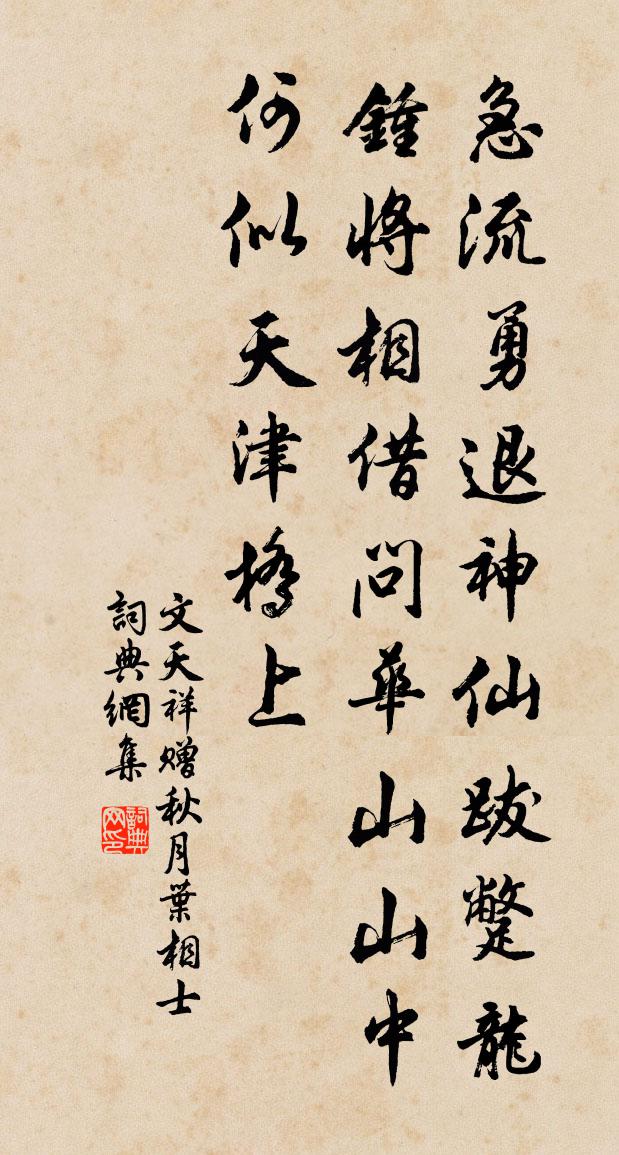 急流勇退神仙跋蹩龍
鍾將相借問華山山中
何似天津橋上
文天祥贈秋月葉相士
詞典網集
詞典网印